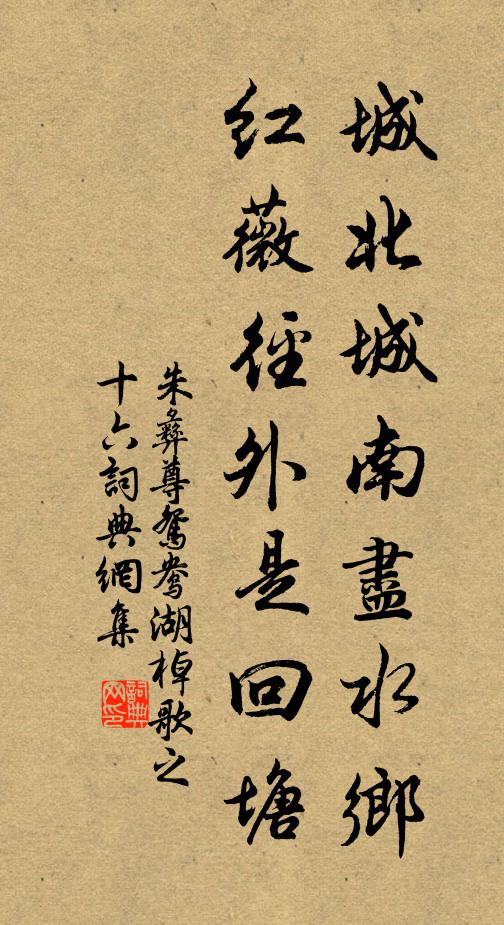 城北城南盡水鄉
紅薇徑外是回塘
朱彝尊鴛鴦湖棹歌之
十六詞典網集
詞典網印